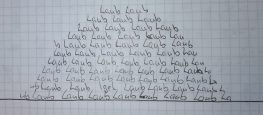 Laub Laub
Laub Laub Laub
Laub Laub Laub Laub
Laub Laub Laub Laub Laub
b Laub Laub Laub Laub Laub
Laub Laub Laub Laub Laub Lau
Laub Laub Laub Laub Laub Lau
Laub Laub Laub Laub Laub Laub L
Laub Laub Laub Laub Laub Laub La
Laub Laub Laub Laub Laub Laub
ub Laub Laub Laub Laub Laub Laub La